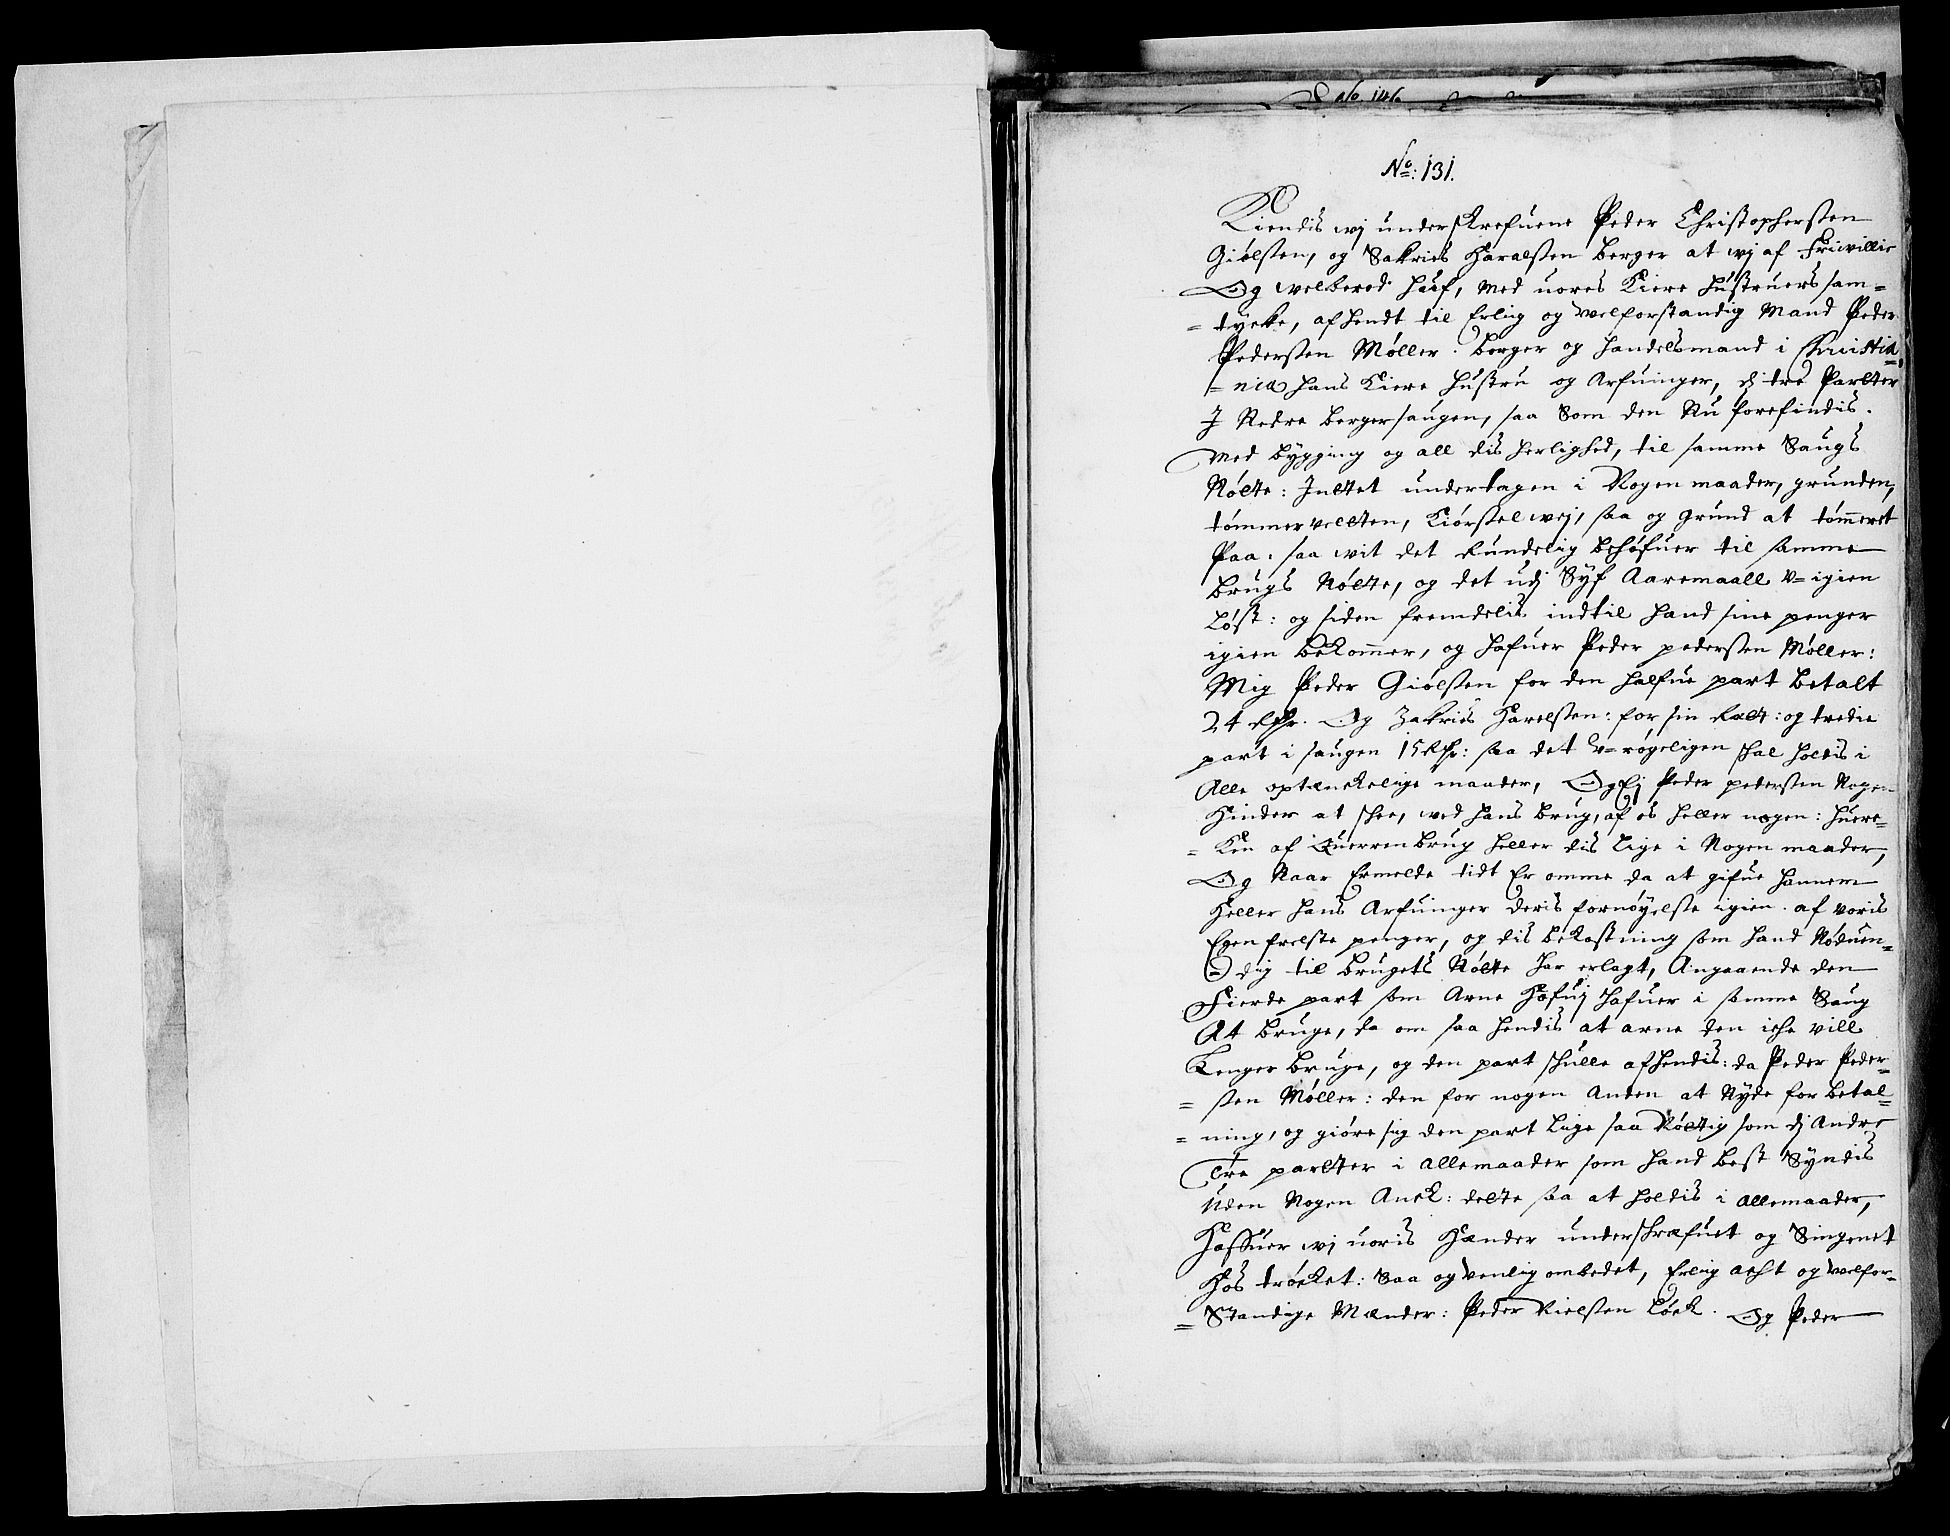 No. 146
No: 131.
Kiendis wj underskrefuene Peder Christophersten
Giølsten, og Sakries Haralsten Berger at wj af Friwillie
Og welberod Huf, med uores Kiere Hustruers sam=
=tycke, afhendt til Erlig og velforstandig Mand Peder
Pedersten Møller. borger og handelsmand i Christia
=nia hans Kiere hustru og Arfuinger, dj tre Parter
I Nedre bergersaugen, saa Som den Nu forefindis.
med bygging og all dis herlighed, til samme Saugs
Nøtte: Inttet undertagen i Nogen maader, grunden,
tømmervellten, Kiørssel wej, saa og grund at tømeret
Paa, saa wit det kundelig behøfuer til samme
brugs Nøtte, og det udj Syf Aaremaall v=igien
Løst: og siden fremdelis indtil hand sine penger
igien bekommer, og hafuer Peder pedersten Møller:
Mig Peder Giølsten for den halfue part betalt
24 Rdr. Og Zakries Harelsten: for sin halt: og tredie
part i saugen 15 Rdr: saa det v=røgeligen skal holdis i
Alle optænckelige maader, Og Ej Peder pedersten Nogen
Hinder at skee, wed hans brug, af os heller nogen: huere=
=ken af Querrenbrug heller dis lige i Nogen maader,
Og Naar Ermelde tidt Er omme da at gifue hannem
Heller hans Arfuinger deris fornøyelste igien. af voris
Egen frelste penger, og dis bekostning som hand Nøduen=
=dig til brugets Nøtte har erlagt, Angaaende den
Fierde part som Arne Hofuj hafuer i samme Saug
At bruge, da om saa hendis at arne den iche vill
Lenger bruge, og den part skulle afhendis: da Peder Peder=
=sten Møller: den for nogen Anden at Nyde for betal=
=ning, og giøre sig den part lige saa Nøttig som dj Andre
Tre partter i allemaader som hand best Syndis
Uden Nogen Anck: dette saa at holdis i allemaader,
Hafuer wj uoris Hænder underskræfuet og Singenet
Hos trøcket: Saa og venlig ombedet, Erlig acht og velfor=
=Standige Mænder: Peder Nielsten Løck. Og Peder